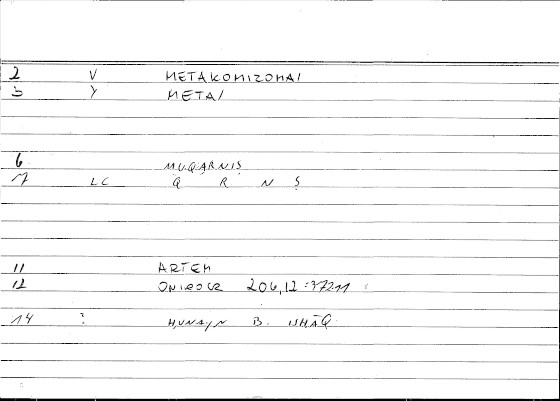 2 V METAKOMIZOMAI
3 Y METAI
6 MUQARNIṢ
7 LC Q R N Ṣ
11 ARTEM
12 ONIROCR 206,12
14 ? ḤUNAYN B. ISḤĀQ